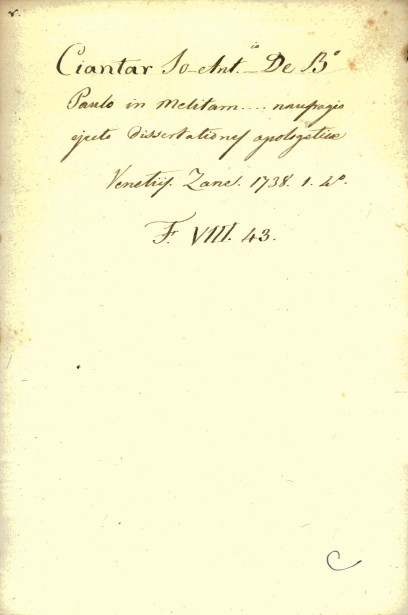 r.
Ciantar Jo. Ant.io De B.o
Paulo in Melitam.... naufragio
ejecto Dissertationes apologeticæ
Venetijs. Zane. 1738. 1. 4.o
F. VIII. 43.
C